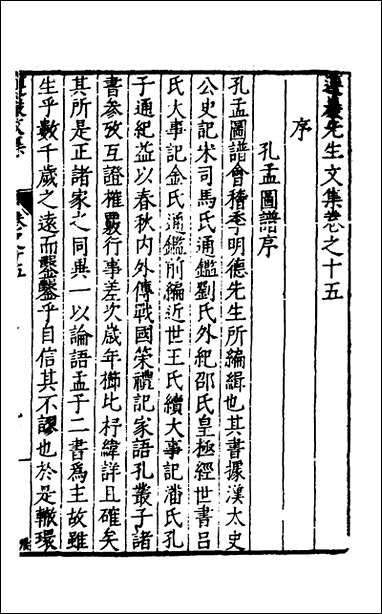 遵巖先生文集卷之十五
序
孔孟圖譜序
孔孟圖譜會稽季明德先生所編緝也其書據漢太史
公史記宋司馬氏通鑑劉氏外紀邵氏皇極經世書呂
氏大事記金氏通鑑前編近世王氏續大事記潘氏孔
子通紀益以春秋内外傳戰國策禮記家語孔叢子諸
書參攷互證榷覈行事差次歳年櫛比杼緯詳且確矣
其所是正諸家之同異一以論語孟子二書爲主故雖
生乎數千歳之遠而鑿鑿乎自信其不謬也於是轍環